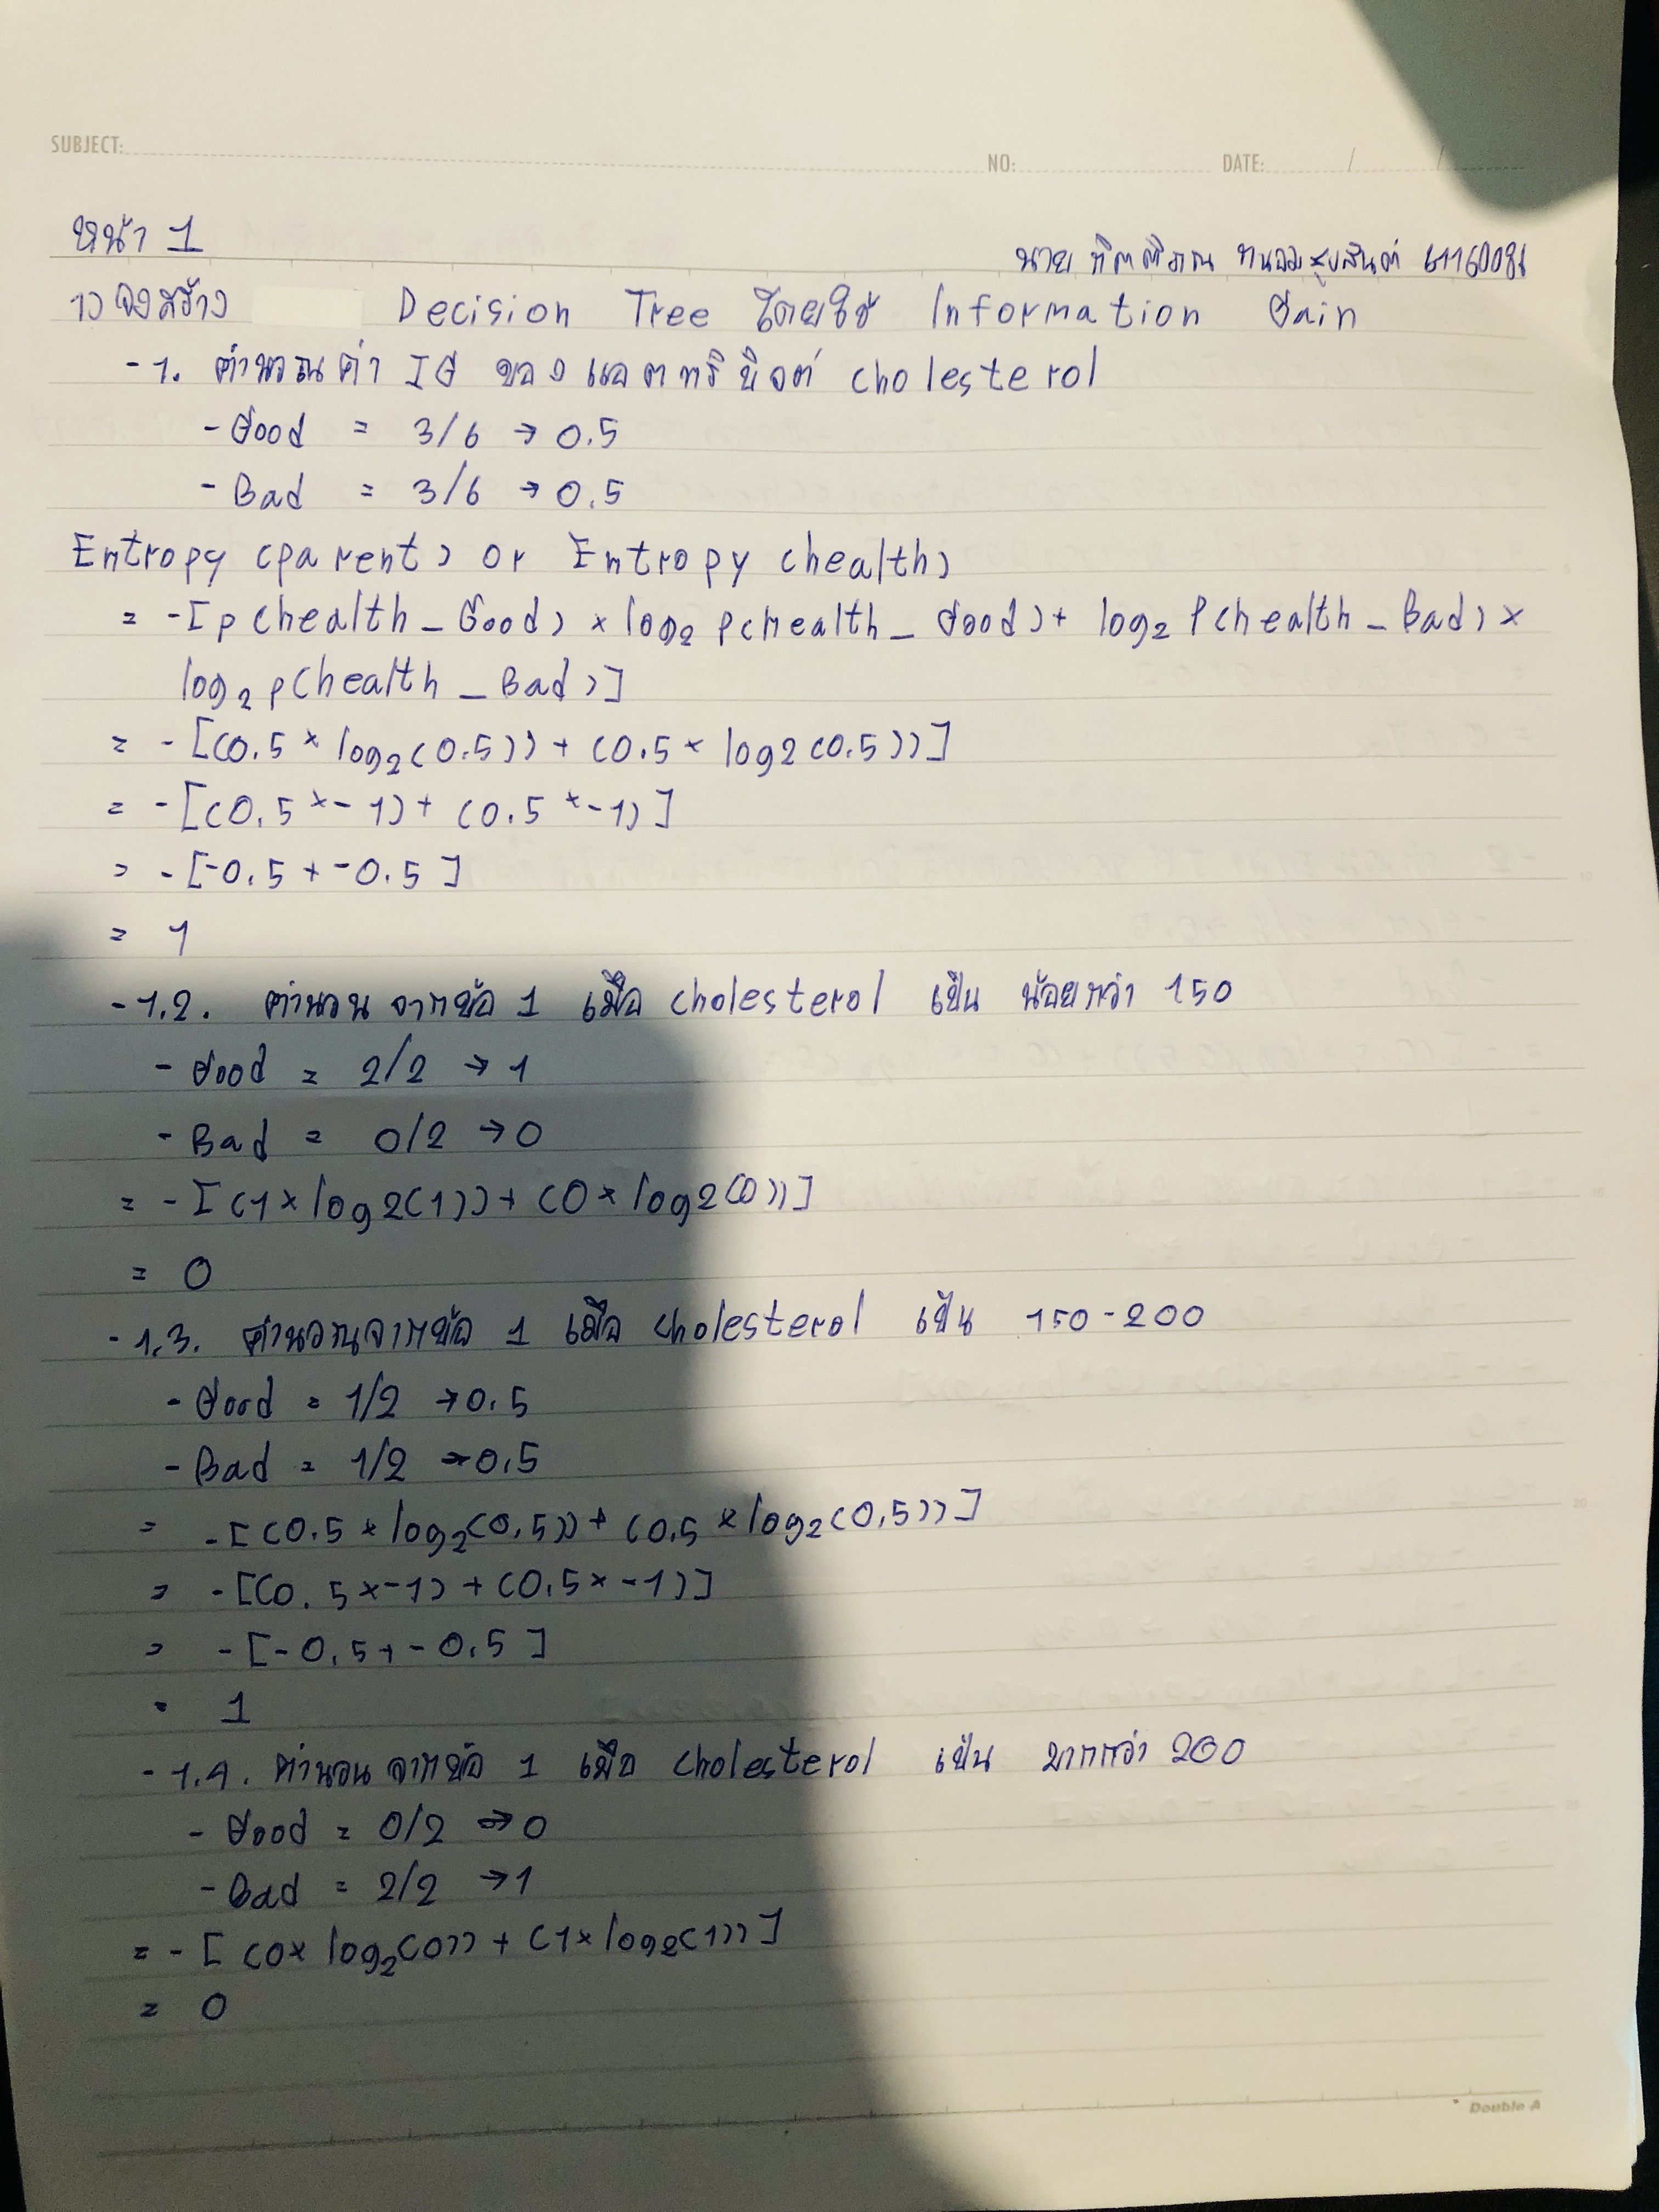 SUBJECT:
NO: DATE: / /
หน้า 1
นาย 61160086
1) จงสร้าง Decision Tree โดยใช้ Information Gain
-1. คำนวณค่า IG ของแอตทริบิวต์ cholesterol
- Good = 3/6 → 0.5
- Bad = 3/6 → 0.5
Entropy (parent) or Entropy (health)
= -[p(health_Good) × log₂ p(health_Good) + log₂ P(health_Bad) ×
log₂ p(health_Bad)]
= -[(0.5 × log₂(0.5)) + (0.5 × log2(0.5))]
= -[(0.5 × -1) + (0.5 × -1)]
= -[-0.5 + -0.5]
= 1
-1.2. คำนวน จากข้อ 1 เมื่อ cholesterol เป็น น้อยกว่า 150
- Good = 2/2 → 1
- Bad = 0/2 → 0
= -[(1 × log2(1)) + (0 × log2(0))]
= 0
-1.3. คำนวณจากข้อ 1 เมื่อ cholesterol เป็น 150-200
- Good = 1/2 → 0.5
- Bad = 1/2 → 0.5
= -[(0.5 × log₂(0.5)) + (0.5 × log₂(0.5))]
= -[(0.5 × -1) + (0.5 × -1)]
= -[-0.5 + -0.5]
= 1
-1.4. คำนวน จากข้อ 1 เมื่อ cholesterol เป็น มากกว่า 200
- Good = 0/2 → 0
- Bad = 2/2 → 1
= -[(0 × log₂(0)) + (1 × log2(1))]
= 0
Double A